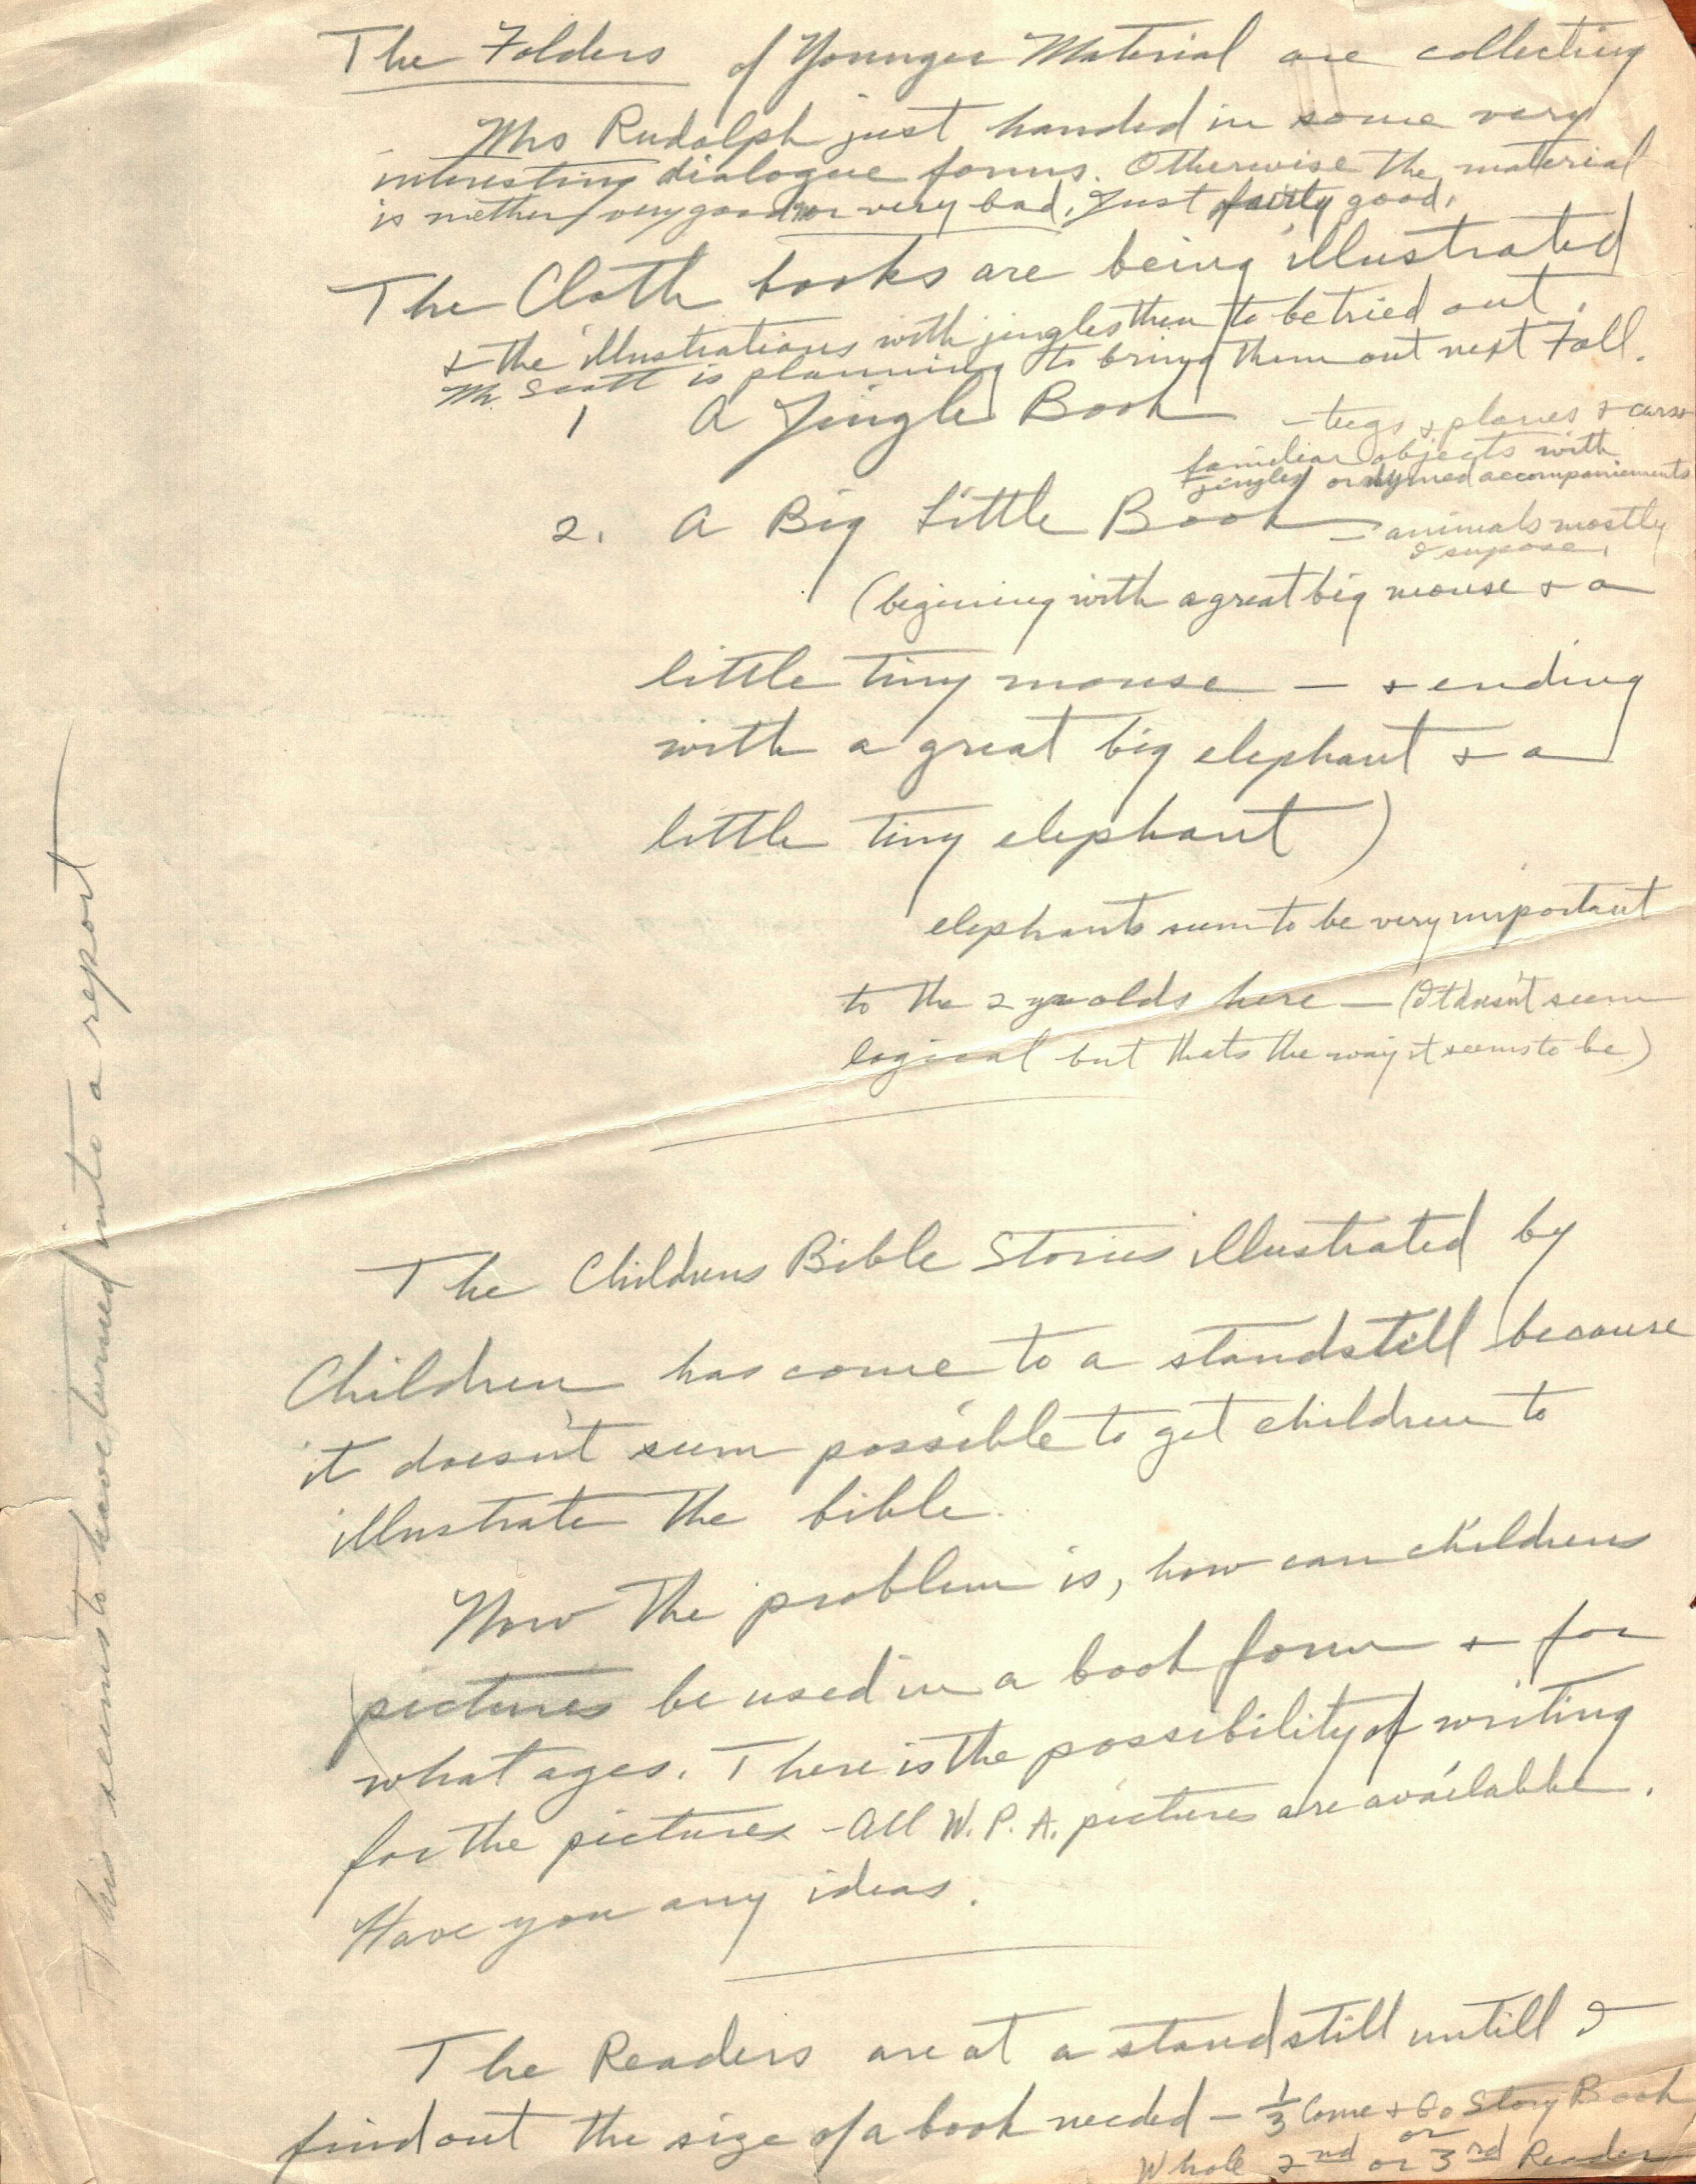 The Folders of Younger Material are collecting
Mrs Rudolph just handed in some very
interesting dialogue forms. Otherwise the material
is niether very good nor very bad. Just fairly good.
The Cloth books are being illustrated
& the illustrations with jingles then to be tried out.
Mr. Scott is planning to bring them out next Fall.
1 A Jingle Book - tugs & planes & cars &
familiar objects with
jingles or rhymed accompaniements
2. A Big Little Book - animals mostly
I supose.
(begining with a great big mouse & a
little tiny mouse — & ending
with a great big elephant & a
little tiny elephant)
elephants seem to be very important
to the 2 yr olds here — (It doesn't seem
logical but thats the way it seems to be)
The Childrens Bible Stories illustrated by
Children has come to a standstill because
it doesn't seem possible to get children to
illustrate the bible.
Now the problem is, how can childrens
pictures be used in a book form & for
what ages. There is the possibility of writing
for the pictures - All W.P.A. pictures are available.
Have you any ideas.
The Readers are at a standstill untill I
find out the size of a book needed - 1/3 Come & Go Story Book
or
Whole 2nd or 3rd Reader
This seems to have turned into a report